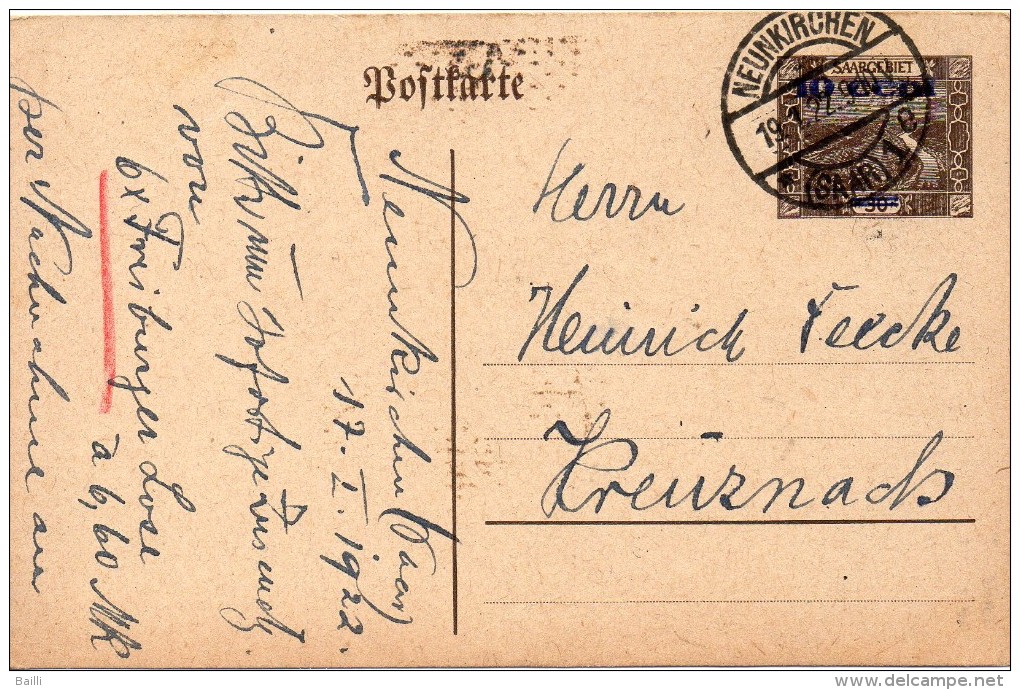 Postkarte
NEUNKIRCHEN
19.1.22. 9-10V
(SAAR) 1
SAARGEBIET
10 Cent
30
Herrn
Heinrich Feecke
Kreuznach
Neunkirchen (Saar)
17. I. 1922.
Bitte um sofortige Zusendg
von
6x Freiburger Lose
a 6,60 Mk
per Nachnahme an
Bailli
delcampe.net